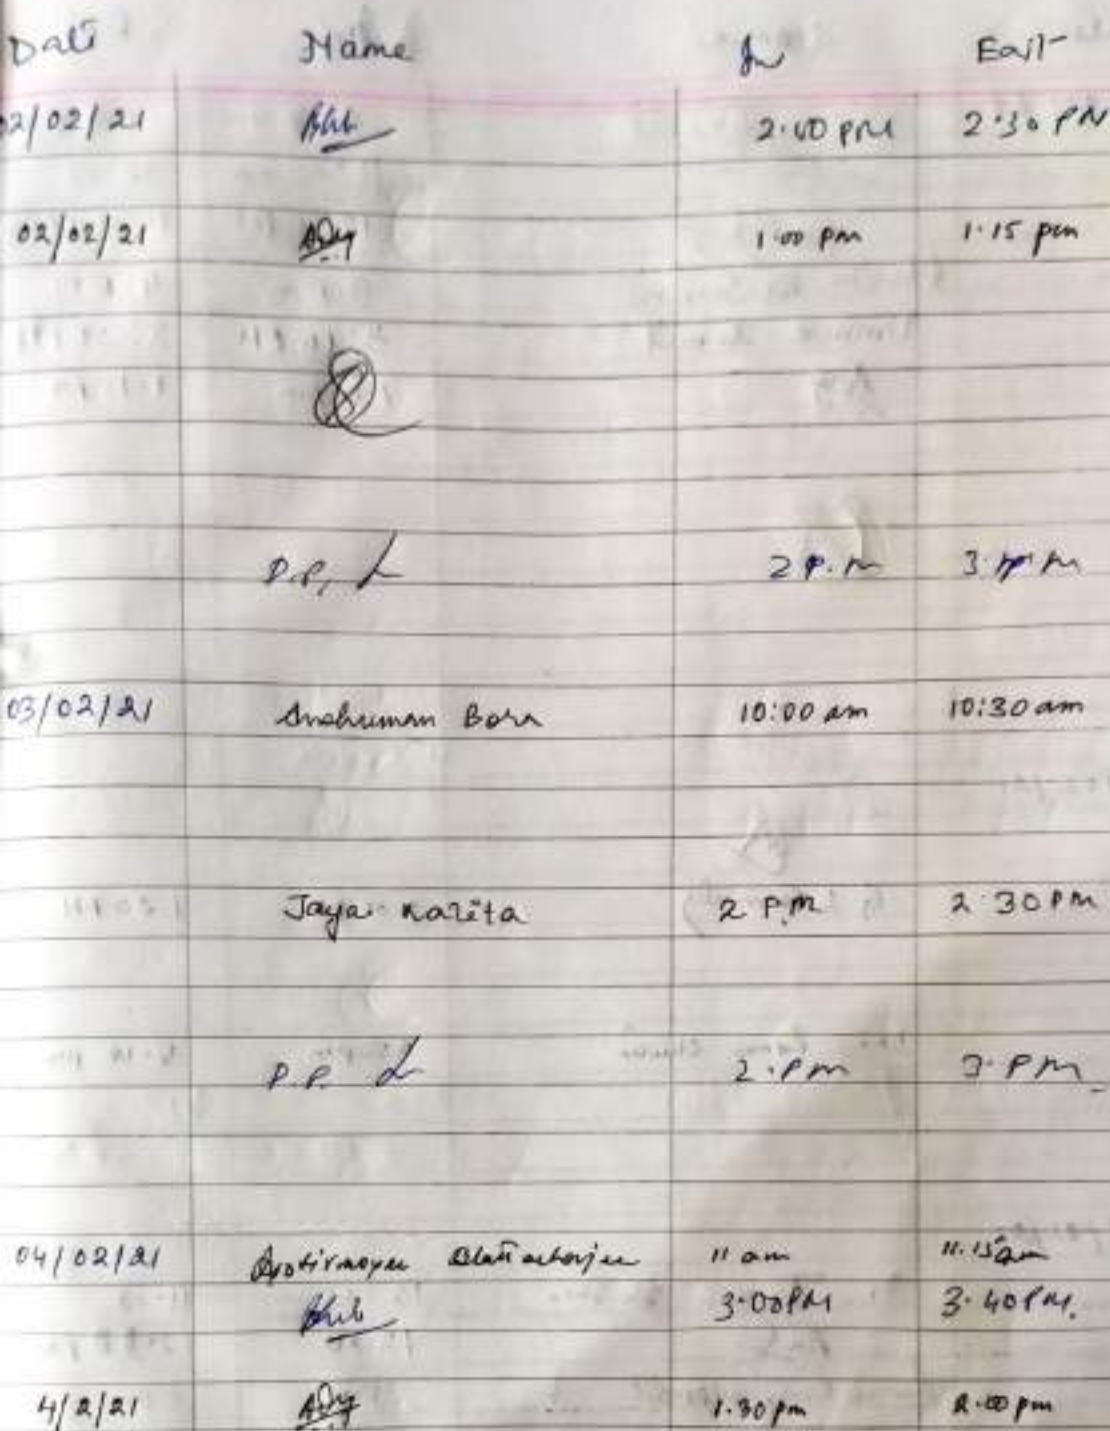 Date Name In Exit
2/02/21 2.00 PM 2.30 PM
02/02/21 1.00 pm 1.15 pm
D.P. 2 P.m 3 P m
03/02/21 Anshuman Bora 10:00 am 10:30 am
Jaya Kalita 2 P.m 2 30 PM
P.P. 2.Pm 3.Pm
04/02/21 11 am 11.15am
3.00PM 3.40PM.
4/2/21 1.30 pm 2.00 pm